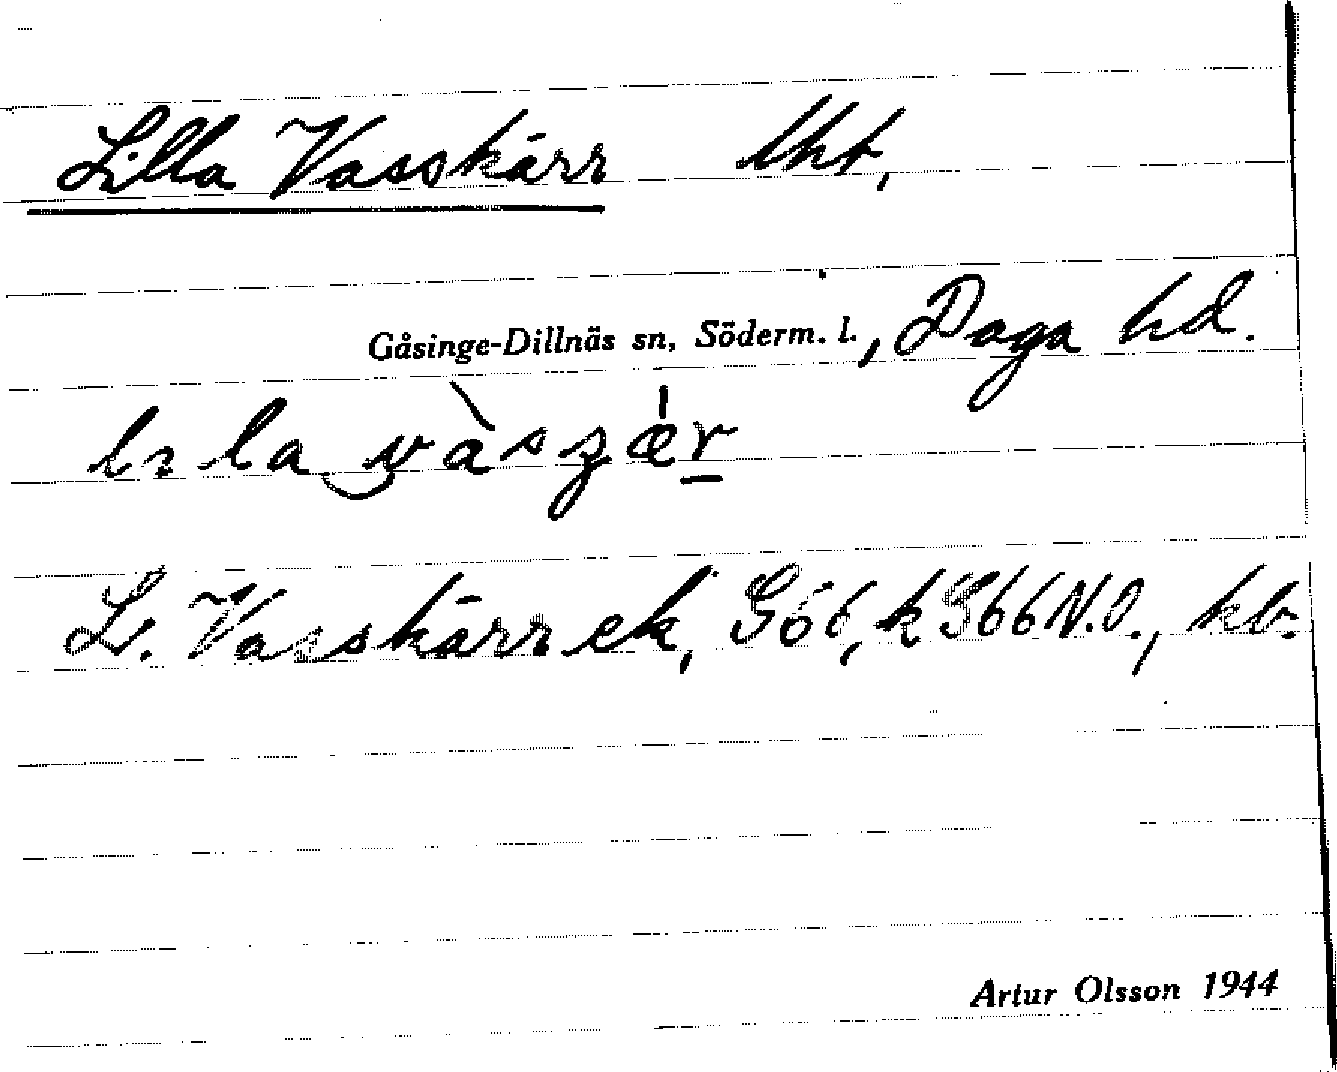 Lilla Vasskärr lht,
Gåsinge-Dillnäs sn, Söderm. l., Daga hd.
L. Vasskärr ek, Gök, k 366 N.O., kb.
Artur Olsson 1944